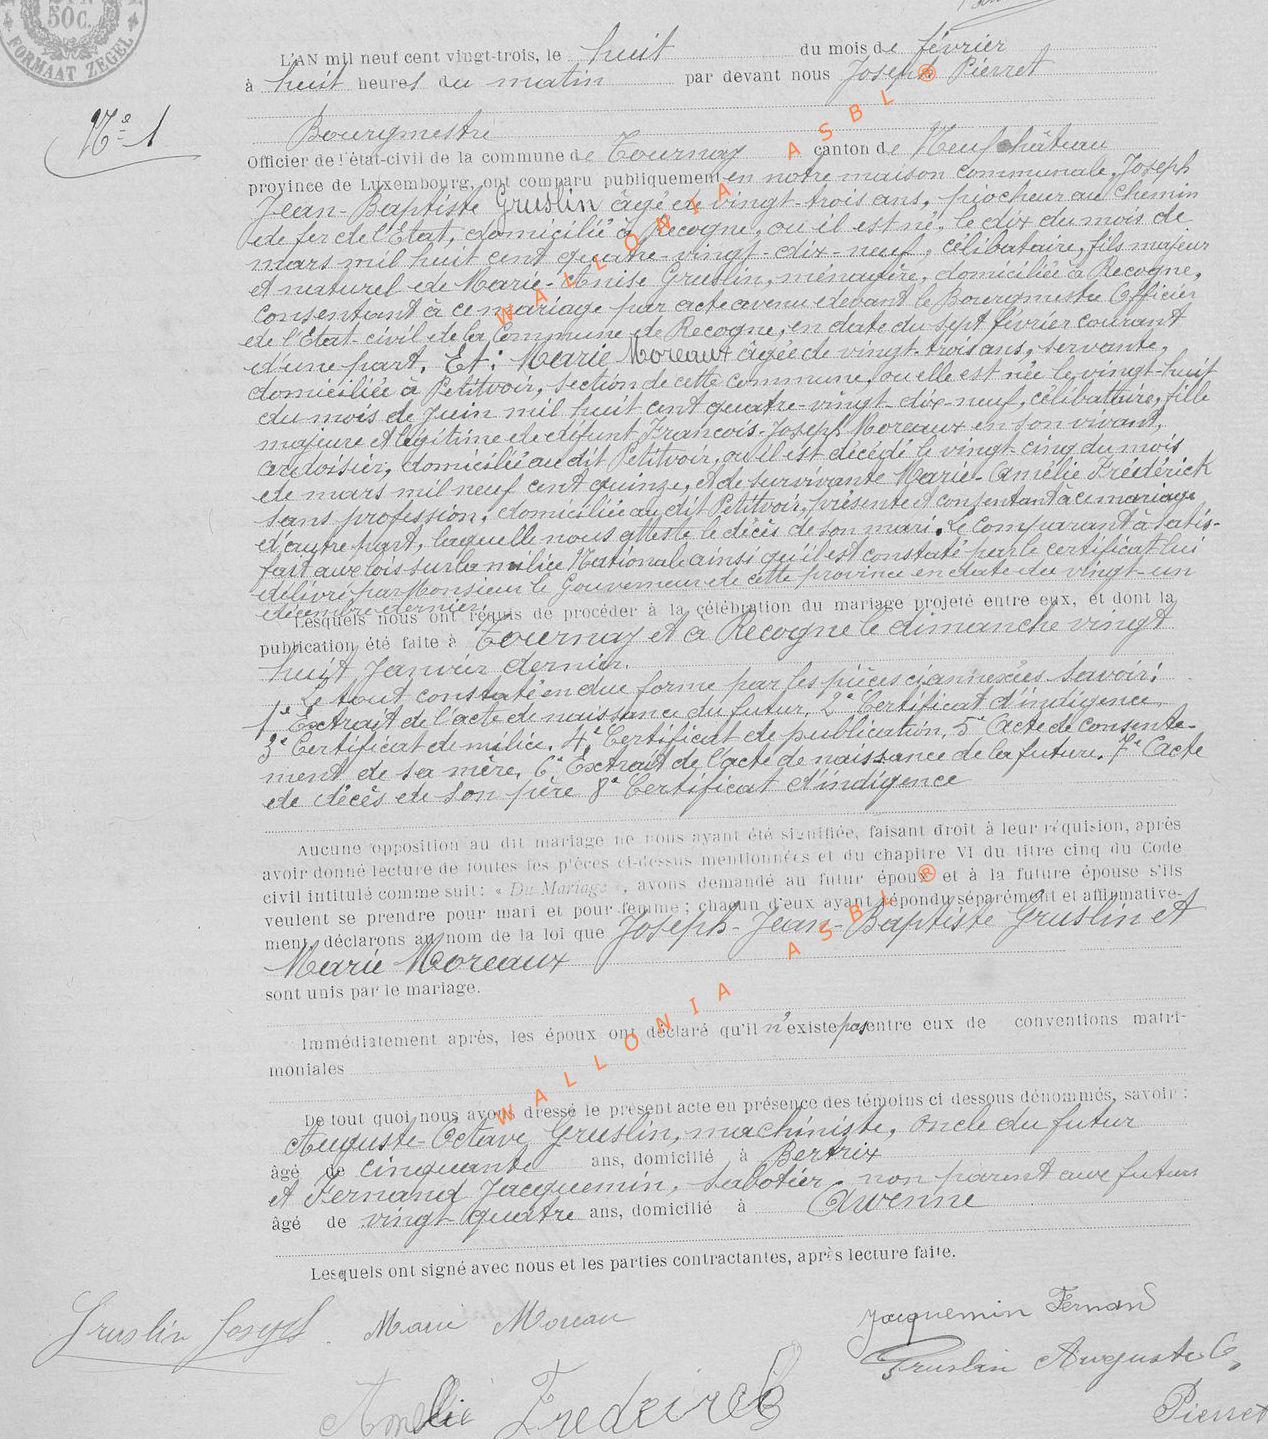 50C.
FORMAAT ZEGEL
L'AN mil neuf cent vingt-trois, le huit du mois de février
à huit heures du matin par devant nous Joseph Pierret
Nº 1
Bourgmestre
Officier de l'état-civil de la commune de Tournay canton de Neufchâteau
province de Luxembourg, ont comparu publiquement en notre maison communale, Joseph
Jean-Baptiste Gruslin âgé de vingt-trois ans, piocheur au chemin
de fer de l'Etat, domicilié à Recogne, où il est né, le dix du mois de
mars mil huit cent quatre-vingt-dix-neuf, célibataire, fils majeur
et naturel de Marie-Anise Gruslin, ménagère, domiciliée à Recogne,
consentant à ce mariage par acte avenu devant le Bourgmestre Officier
de l'Etat-civil de la Commune de Recogne, en date du sept février courant
d'une part. Et: Marie Moreaux âgée de vingt-trois ans, servante,
domiciliée à Petitvoir, section de cette commune, où elle est née le vingt-huit
du mois de Juin mil huit cent quatre-vingt-dix-neuf, célibataire, fille
majeure et légitime de défunt François-Joseph Moreaux en son vivant,
ardoisier, domicilié au dit Petitvoir, où il est décédé le vingt-cinq du mois
de mars mil neuf cent quinze, et de survivante Marie-Amélie Frédérick
sans profession, domiciliée au dit Petitvoir, présente et consentant à ce mariage
d'autre part, laquelle nous atteste le décès de son mari. Le comparant à satis-
fait aux lois sur la milice Nationale ainsi qu'il est constaté par le certificat lui
délivré par Monsieur le Gouverneur de cette province en date du vingt-un
décembre dernier.
Lesquels nous ont requis de procéder à la célébration du mariage projeté entre eux, et dont la
publication été faite à Tournay et à Recogne le dimanche vingt
huit Janvier dernier.
Le tout constaté en due forme par les pièces ci annexées savoir:
1º Extrait de l'acte de naissance du futur, 2º Certificat d'indigence,
3º Certificat de milice, 4º Certificat de publication, 5º Acte de consente-
ment de sa mère, 6º Extrait de l'acte de naissance de la future. 7º Acte
de décès de son père 8º Certificat d'indigence
Aucune opposition au dit mariage ne nous ayant été signifiée, faisant droit à leur réquision, après
avoir donné lecture de toutes les pièces ci-dessus mentionnées et du chapitre VI du titre cinq du Code
civil intitulé comme suit: « Du Mariage », avons demandé au futur époux et à la future épouse s'ils
veulent se prendre pour mari et pour femme; chacun d'eux ayant répondu séparément et affirmative-
ment, déclarons au nom de la loi que Joseph-Jean-Baptiste Gruslin et
Marie Moreaux
sont unis par le mariage.
Immédiatement après, les époux ont déclaré qu'il n'existe pas entre eux de conventions matri-
moniales
De tout quoi nous avons dressé le présent acte en présence des témoins ci dessous dénommés, savoir:
Auguste-Octave Gruslin, machiniste, oncle du futur
âgé de cinquante ans, domicilié à Bertrix
et Fernand Jacquemin, sabotier, non parent aux futurs
âgé de vingt-quatre ans, domicilié à Awenne
Lesquels ont signé avec nous et les parties contractantes, après lecture faite.
Gruslin Joseph Marie Moreau Jacquemin Fernand
Gruslin Auguste O,
Amélie Fredeirck Pierret
WALLONIA ASBL ®
WALLONIA ASBL ®